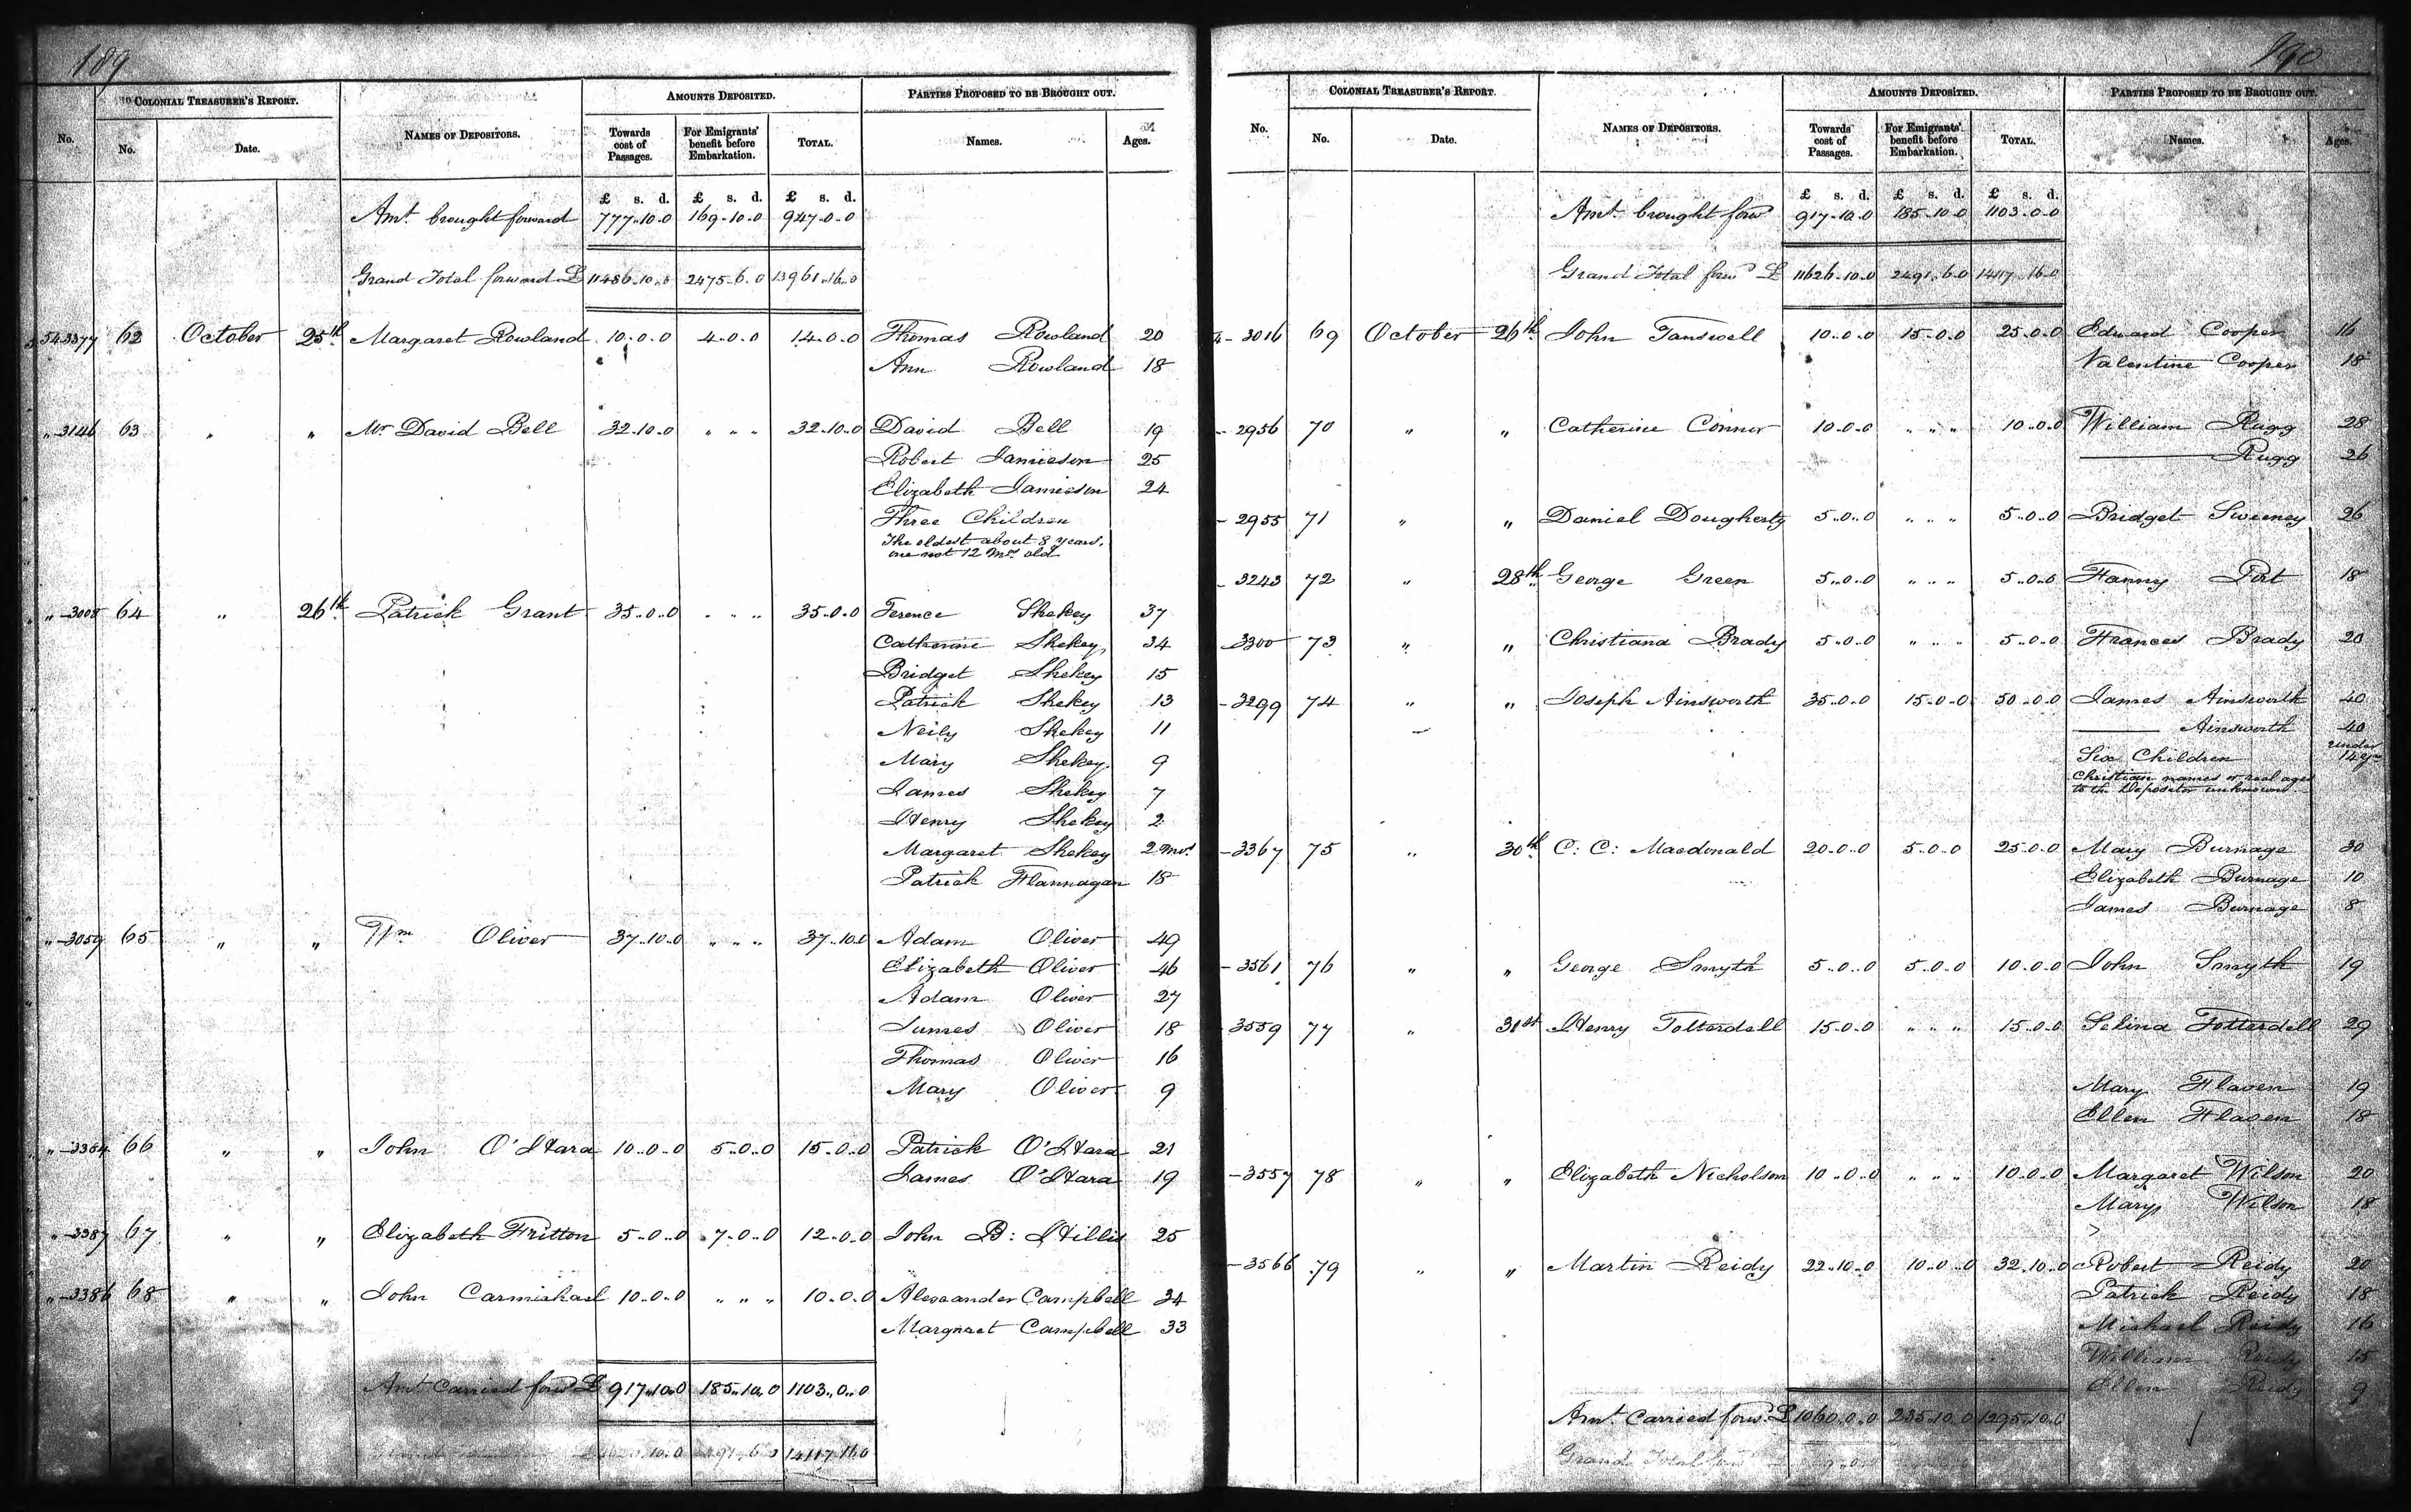 189
COLONIAL TREASURER'S REPORT. AMOUNTS DEPOSITED. PARTIES PROPOSED TO BE BROUGHT OUT.
No. No. Date. NAMES OF DEPOSITORS. Towards cost of Passages. For Emigrants' benefit before Embarkation. TOTAL. Names. Ages.
£ s. d. £ s. d. £ s. d.
Amt. brought forward 777..10..0 169..10..0 947..0..0
Grand Total forward £ 11486..10..0 2475..6..0 13961..16..0
3377 62 October 25th Margaret Rowland 10..0..0 4..0..0 14..0..0 Thomas Rowland 20
Ann Rowland 18
" 3146 63 " " Mr David Bell 32..10..0 " " " 32..10..0 David Bell 19
Robert Jamieson 25
Elizabeth Jamieson 24
Three Children
The oldest about 8 years.
one not 12 Mos old
" 3008 64 " 26th Patrick Grant 35..0..0 " " " 35..0..0 Terence Shekey 37
Catherine Shekey 34
Bridget Shekey 15
Patrick Shekey 13
Neily Shekey 11
Mary Shekey 9
James Shekey 7
Henry Shekey 2
Margaret Shekey 2 Mos
Patrick Flannagan 18
" 3059 65 " " Wm Oliver 37..10..0 " " " 37..10..0 Adam Oliver 49
Elizabeth Oliver 46
Adam Oliver 27
James Oliver 18
Thomas Oliver 16
Mary Oliver 9
" 3364 66 " " John O'Hara 10..0..0 5..0..0 15..0..0 Patrick O'Hara 21
James O'Hara 19
" 3387 67 " " Elizabeth Fritton 5..0..0 7..0..0 12..0..0 John B: Hillis 25
" 3386 68 " " John Carmichael 10..0..0 " " " 10..0..0 Alexander Campbell 34
Margaret Campbell 33
Amt Carried forwd £ 917..10..0 185..10..0 1103..0..0
14117..16..0
190
COLONIAL TREASURER'S REPORT. AMOUNTS DEPOSITED. PARTIES PROPOSED TO BE BROUGHT OUT.
No. No. Date. NAMES OF DEPOSITORS. Towards cost of Passages. For Emigrants' benefit before Embarkation. TOTAL. Names. Ages.
£ s. d. £ s. d. £ s. d.
Amt. brought forwd 917..10..0 185..10..0 1103..0..0
Grand Total forwd £ 11626..10..0 2491..6..0 14117..16..0
3016 69 October 26th John Tanswell 10..0..0 15..0..0 25..0..0 Edward Cooper 16
Valentine Cooper 18
2956 70 " " Catherine Connor 10..0..0 " " " 10..0..0 William Rugg 28
—— Rugg 26
2955 71 " " Daniel Dougherty 5..0..0 " " " 5..0..0 Bridget Sweeney 26
3243 72 " 28th George Green 5..0..0 " " " 5..0..0 Fanny 18
3300 73 " " Christiana Brady 5..0..0 " " " 5..0..0 Frances Brady 20
3299 74 " " Joseph Ainsworth 35..0..0 15..0..0 50..0..0 James Ainsworth 40
—— Ainsworth 40
Six Children under 14 yrs
Christian names or real ages
to the Depositor unknown
3367 75 " 30th C: C: Macdonald 20..0..0 5..0..0 25..0..0 Mary Burnage 30
Elizabeth Burnage 10
James Burnage 8
3561 76 " " George Smyth 5..0..0 5..0..0 10..0..0 John Smyth 19
3559 77 " 31st Henry Totterdell 15..0..0 " " " 15..0..0 Selina Totterdell 29
Mary Flaven 19
Ellen Flaven 18
3557 78 " " Elizabeth Nicholson 10..0..0 " " " 10..0..0 Margaret Wilson 20
Mary Wilson 18
3566 79 " " Martin Reidy 22..10..0 10..0..0 32..10..0 Robert Reidy 20
Patrick Reidy 18
Michael Reidy 16
William Reidy 15
Ellen Reidy 9
Amt. Carried forwd. £ 1060..0..0 235..10..0 1295..10..0
Grand Total forwd